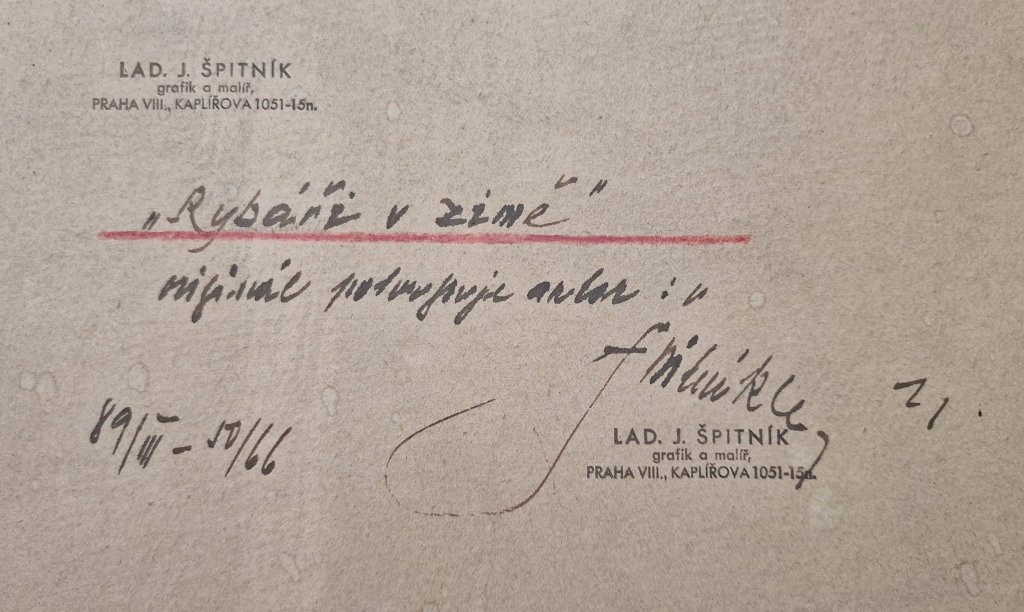 LAD. J. ŠPITNÍK
grafik a malíř,
PRAHA VIII., KAPLÍŘOVA 1051-15n.
„Rybáři v zimě"
originál potvrzuje autor : „
89/III – 50/66
LAD. J. ŠPITNÍK
grafik a malíř,
PRAHA VIII., KAPLÍŘOVA 1051-15n.